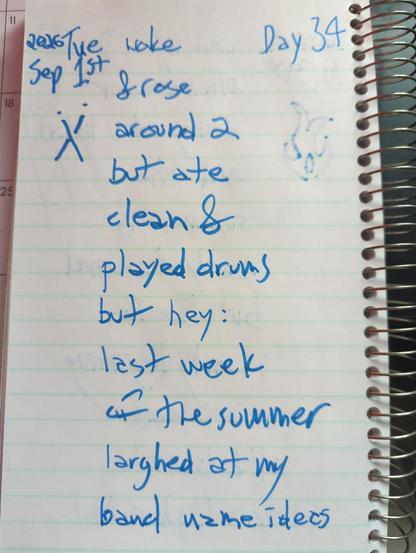 2026 Tue woke Day 34
Sep 1st & rose
around 2
but ate
clean &
played drums
but hey:
last week
of the summer
larghed at my
band name ideas
11
18
25